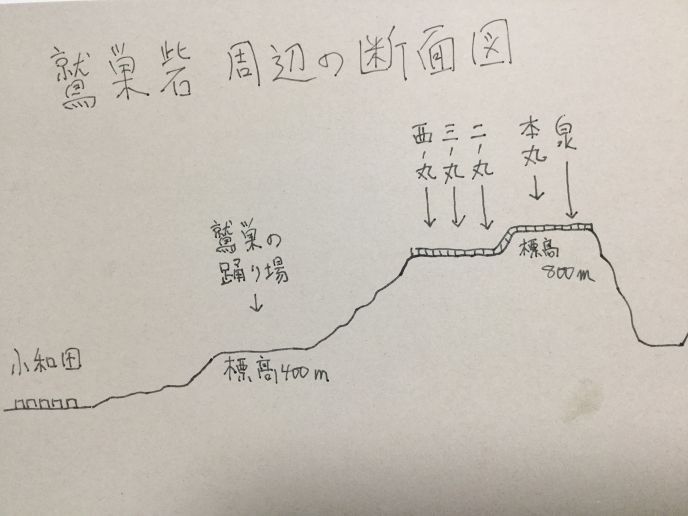 鷲巣砦周辺の断面図
西ノ丸
三ノ丸
二ノ丸
本丸
泉
鷲巣の
踊り場
標高
800m
小和田
標高400m